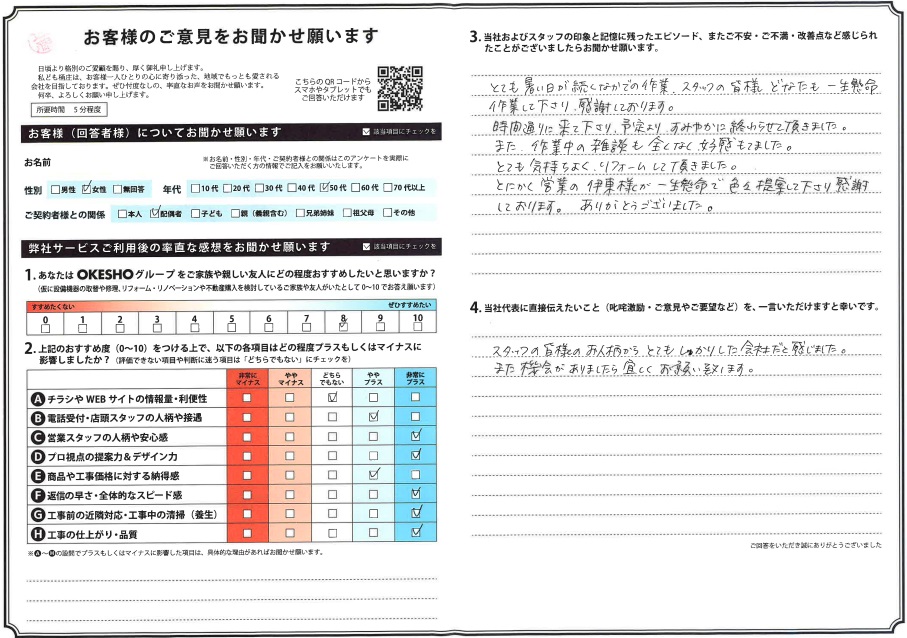 お客様のご意見をお聞かせ願います
日頃より格別のご愛顧を賜り、厚く御礼申し上げます。
私ども桶庄は、お客様一人ひとりの心に寄り添った、地域でもっとも愛される
会社を目指しております。ぜひ忖度なしの、率直なお声をお聞かせ願います!
何卒、よろしくお願い申し上げます。
所要時間 5分程度
こちらのQRコードから
スマホやタブレットでも
ご回答いただけます
お客様(回答者様)についてお聞かせ願います
該当項目にチェックを
お名前
※お名前・性別・年代・ご契約者様との関係はこのアンケートを実際に
ご回答いただく方の情報でご記入をお願いいたします。
性別 男性 女性 無回答 年代 10代 20代 30代 40代 50代 60代 70代以上
ご契約者様との関係 本人 配偶者 子ども 親(義親含む) 兄弟姉妹 祖父母 その他
弊社サービスご利用後の率直な感想をお聞かせ願います
該当項目にチェックを
1.あなたはOKESHOグループをご家族や親しい友人にどの程度おすすめしたいと思いますか?
(仮に設備機器の取替や修理、リフォーム・リノベーションや不動産購入を検討しているご家族や友人がいたとして0〜10でお答え願います)
すすめたくない ぜひすすめたい
0 1 2 3 4 5 6 7 8 9 10
2.上記のおすすめ度(0〜10)をつける上で、以下の各項目はどの程度プラスもしくはマイナスに
影響しましたか?(評価できない項目や判断に迷う項目は「どちらでもない」にチェックを)
非常にマイナス ややマイナス どちらでもない ややプラス 非常にプラス
A チラシやWEBサイトの情報量・利便性
B 電話受付・店頭スタッフの人柄や接遇
C 営業スタッフの人柄や安心感
D プロ視点の提案力&デザイン力
E 商品や工事価格に対する納得感
F 返信の早さ・全体的なスピード感
G 工事前の近隣対応・工事中の清掃(養生)
H 工事の仕上がり・品質
※A〜Hの設問でプラスもしくはマイナスに影響した項目は、具体的な理由があればお聞かせ願います。
3.当社およびスタッフの印象と記憶に残ったエピソード、またご不安・ご不満・改善点など感じられ
たことがございましたらお聞かせ願います。
とても暑い日が続くなかでの作業、スタッフの皆様、どなたも一生懸命
作業して下さり、感謝しております。
時間通りに来て下さり、予定より、すみやかに終わらせて頂きました。
また、作業中の雑談も全くなく好感もてました。
とても気持ちよく、リフォームして頂きました。
とにかく営業の伊東様が一生懸命で色々提案して下さり感謝
しております。ありがとうございました。
4.当社代表に直接伝えたいこと(叱咤激励・ご意見やご要望など)を、一言いただけますと幸いです。
スタッフの皆様のお人柄から、とてもしっかりした会社だと感じました。
また機会がありましたら宜しくお願い致します。
ご回答をいただき誠にありがとうございました